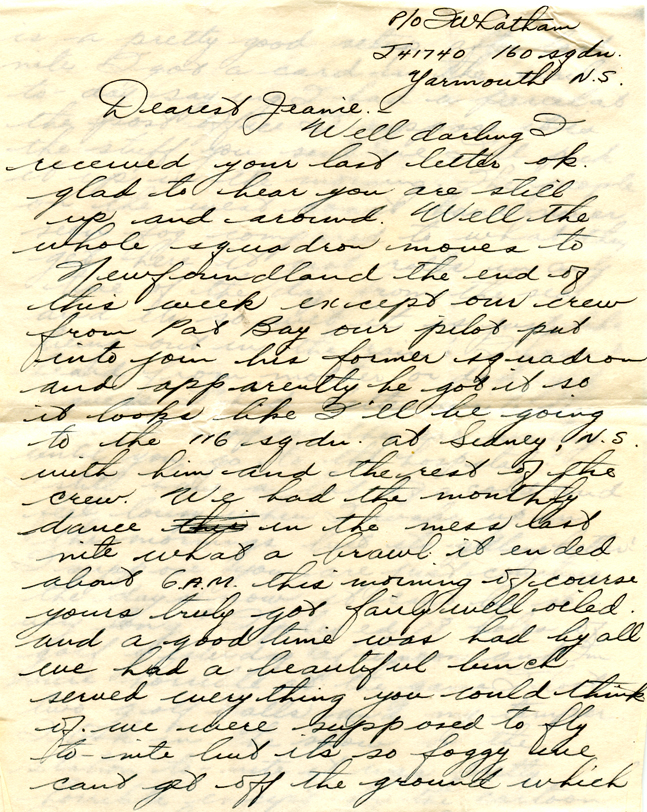 P/O J Whatham
J41740 160 sqdn.
Yarmouth N.S.
Dearest Jeanie.-
Well darling I
received your last letter ok.
glad to hear you are still
up and around. Well the
whole squadron moves to
Newfoundland the end of
this week except our crew
from Pat Bay our pilot put
into join his former squadron
and apparently he got it so
it looks like I'll be going
to the 116 sqdn. at Sidney, N.S.
with him and the rest of the
crew. We had the monthly
dance this in the mess last
nite what a brawl it ended
about 6 A.M. this morning of course
yours truly got fairly well oiled.
and a good time was had by all
we had a beautiful lunch
served everything you could think
of. we were supposed to fly
to nite but its so foggy we
cant get off the ground which